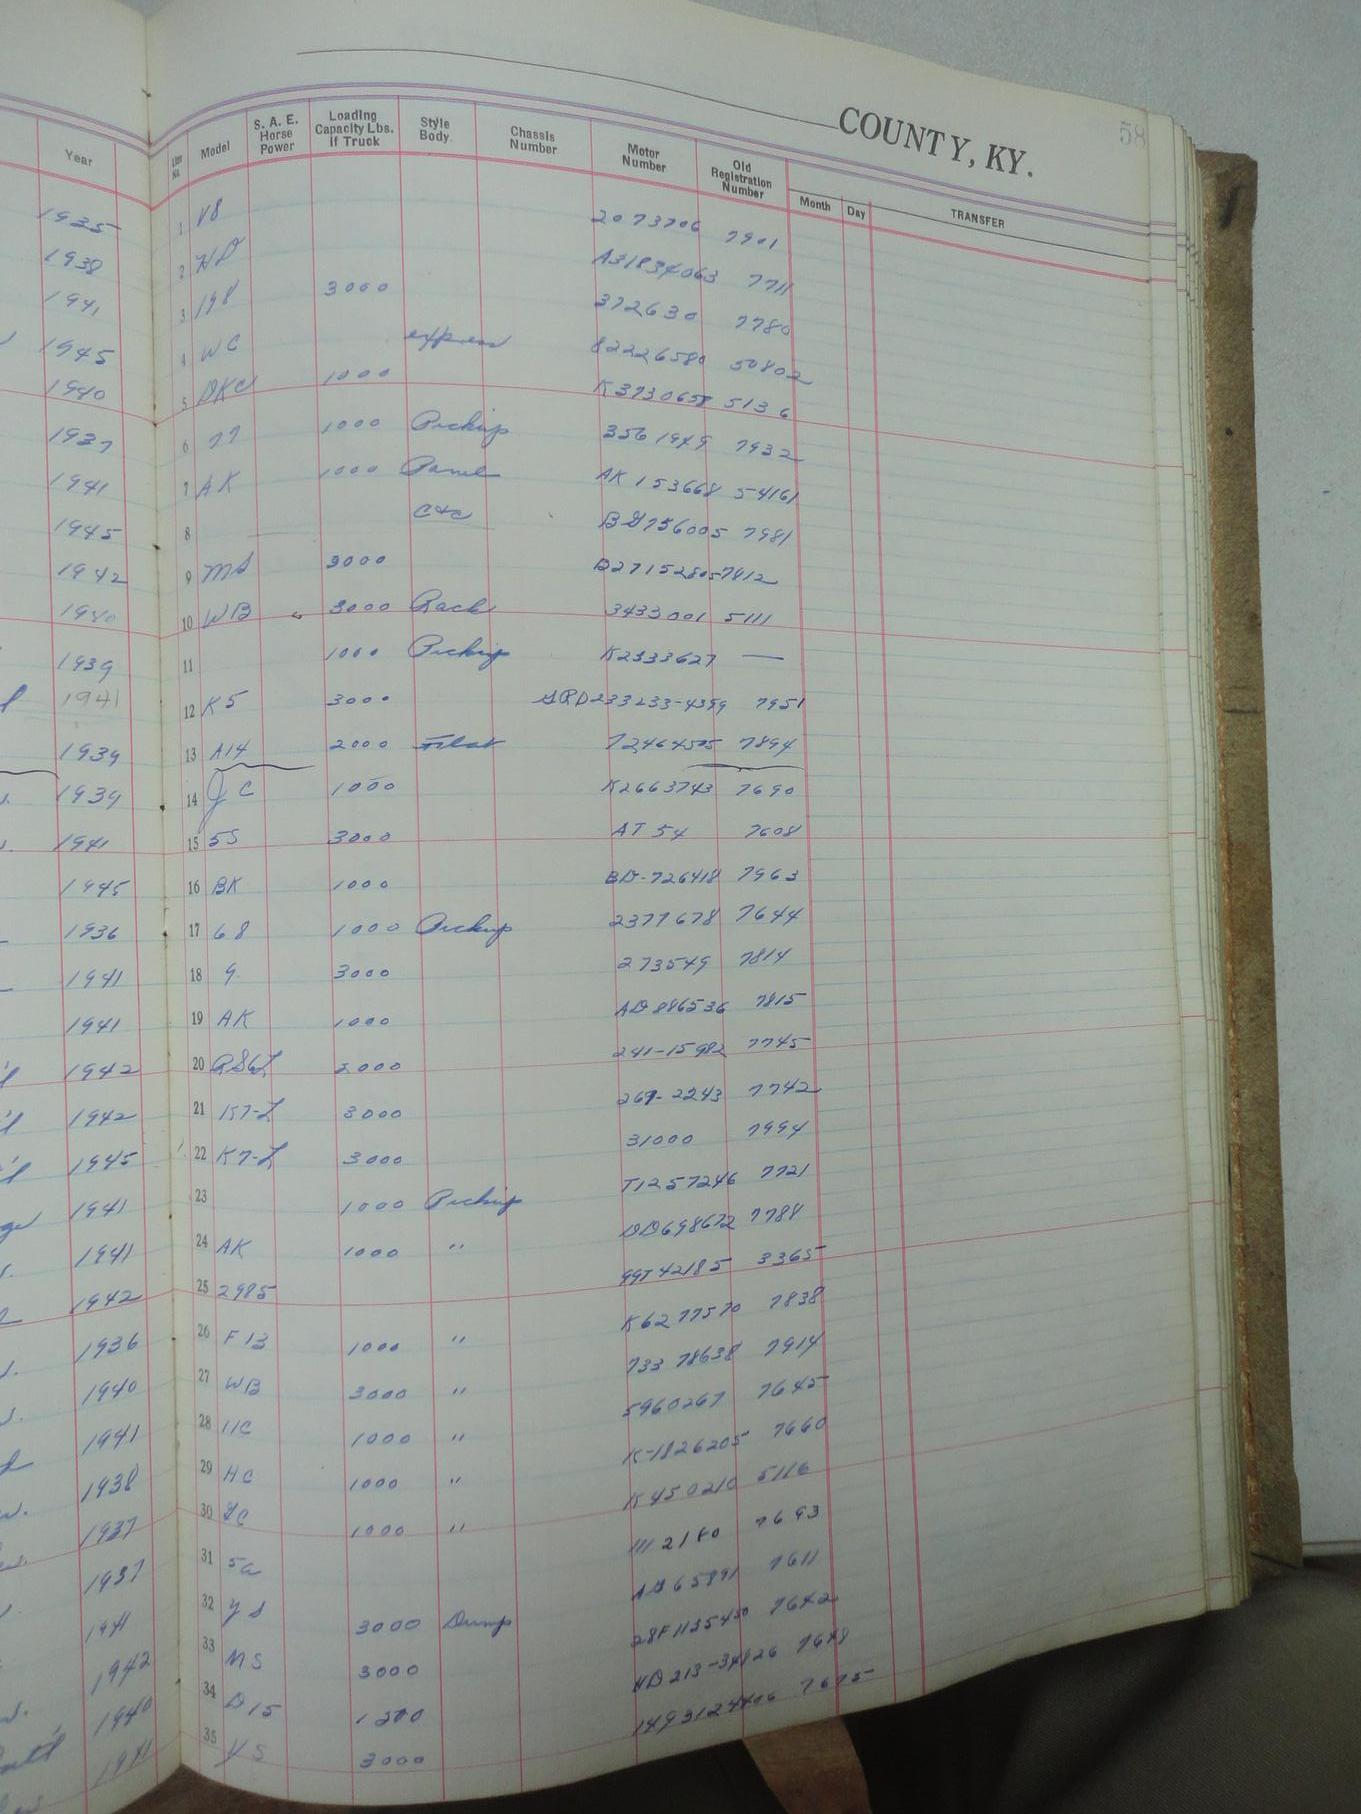 COUNTY, KY.
58
Year
Line No.
Model
S. A. E. Horse Power
Loading Capacity Lbs. If Truck
Style Body
Chassis Number
Motor Number
Old Registration Number
Month
Day
TRANSFER
1935 1 V8 2073706 7901
1938 2 HD A31834063 7711
1941 3 198 3000 372630 7780
1945 4 WC express 82226580 50802
1940 5 DKC 1000 K3730658 5136
1937 6 77 1000 Pickup 3561949 7932
1941 7 AK 1000 Panel AK 153668 54161
1945 8 C&C BG756005 7981
1942 9 MS 3000 B27152805 7812
1940 10 WB 3000 Rack 3433001 5111
1939 11 1000 Pickup K2333627 —
1941 12 K5 3000 GRD233233-4399 7951
1939 13 A14 2000 Flat 72464505 7894
1939 14 JC 1000 K2663743 7690
1941 15 5S 3000 AT 54 7608
1945 16 BK 1000 BD-726418 7963
1936 17 68 1000 Pickup 2377678 7644
1941 18 9 3000 273549 7814
1941 19 AK 1000 AD886536 7815
1942 20 3000 241-15982 7745
1942 21 K7-L 3000 269-2243 7742
1945 22 K7-L 3000 31000 7994
1941 23 1000 Pickup T1257246 7721
1941 24 AK 1000 " DD698672 7788
1942 25 2985 99T42185 3365
1936 26 F13 1000 " K6277570 7838
1940 27 WB 3000 " 733 78638 7914
1941 28 1000 " 5960267 7645
1938 29 HC 1000 " K-1826205 7660
1937 30 GC 1000 " K450210 5116
1937 31 7693
1941 32 YS 3000 Dump AG65891 7611
1942 33 MS 3000 7642
1940 34 D15 1500 7648
1941 35 VS 3000 7675